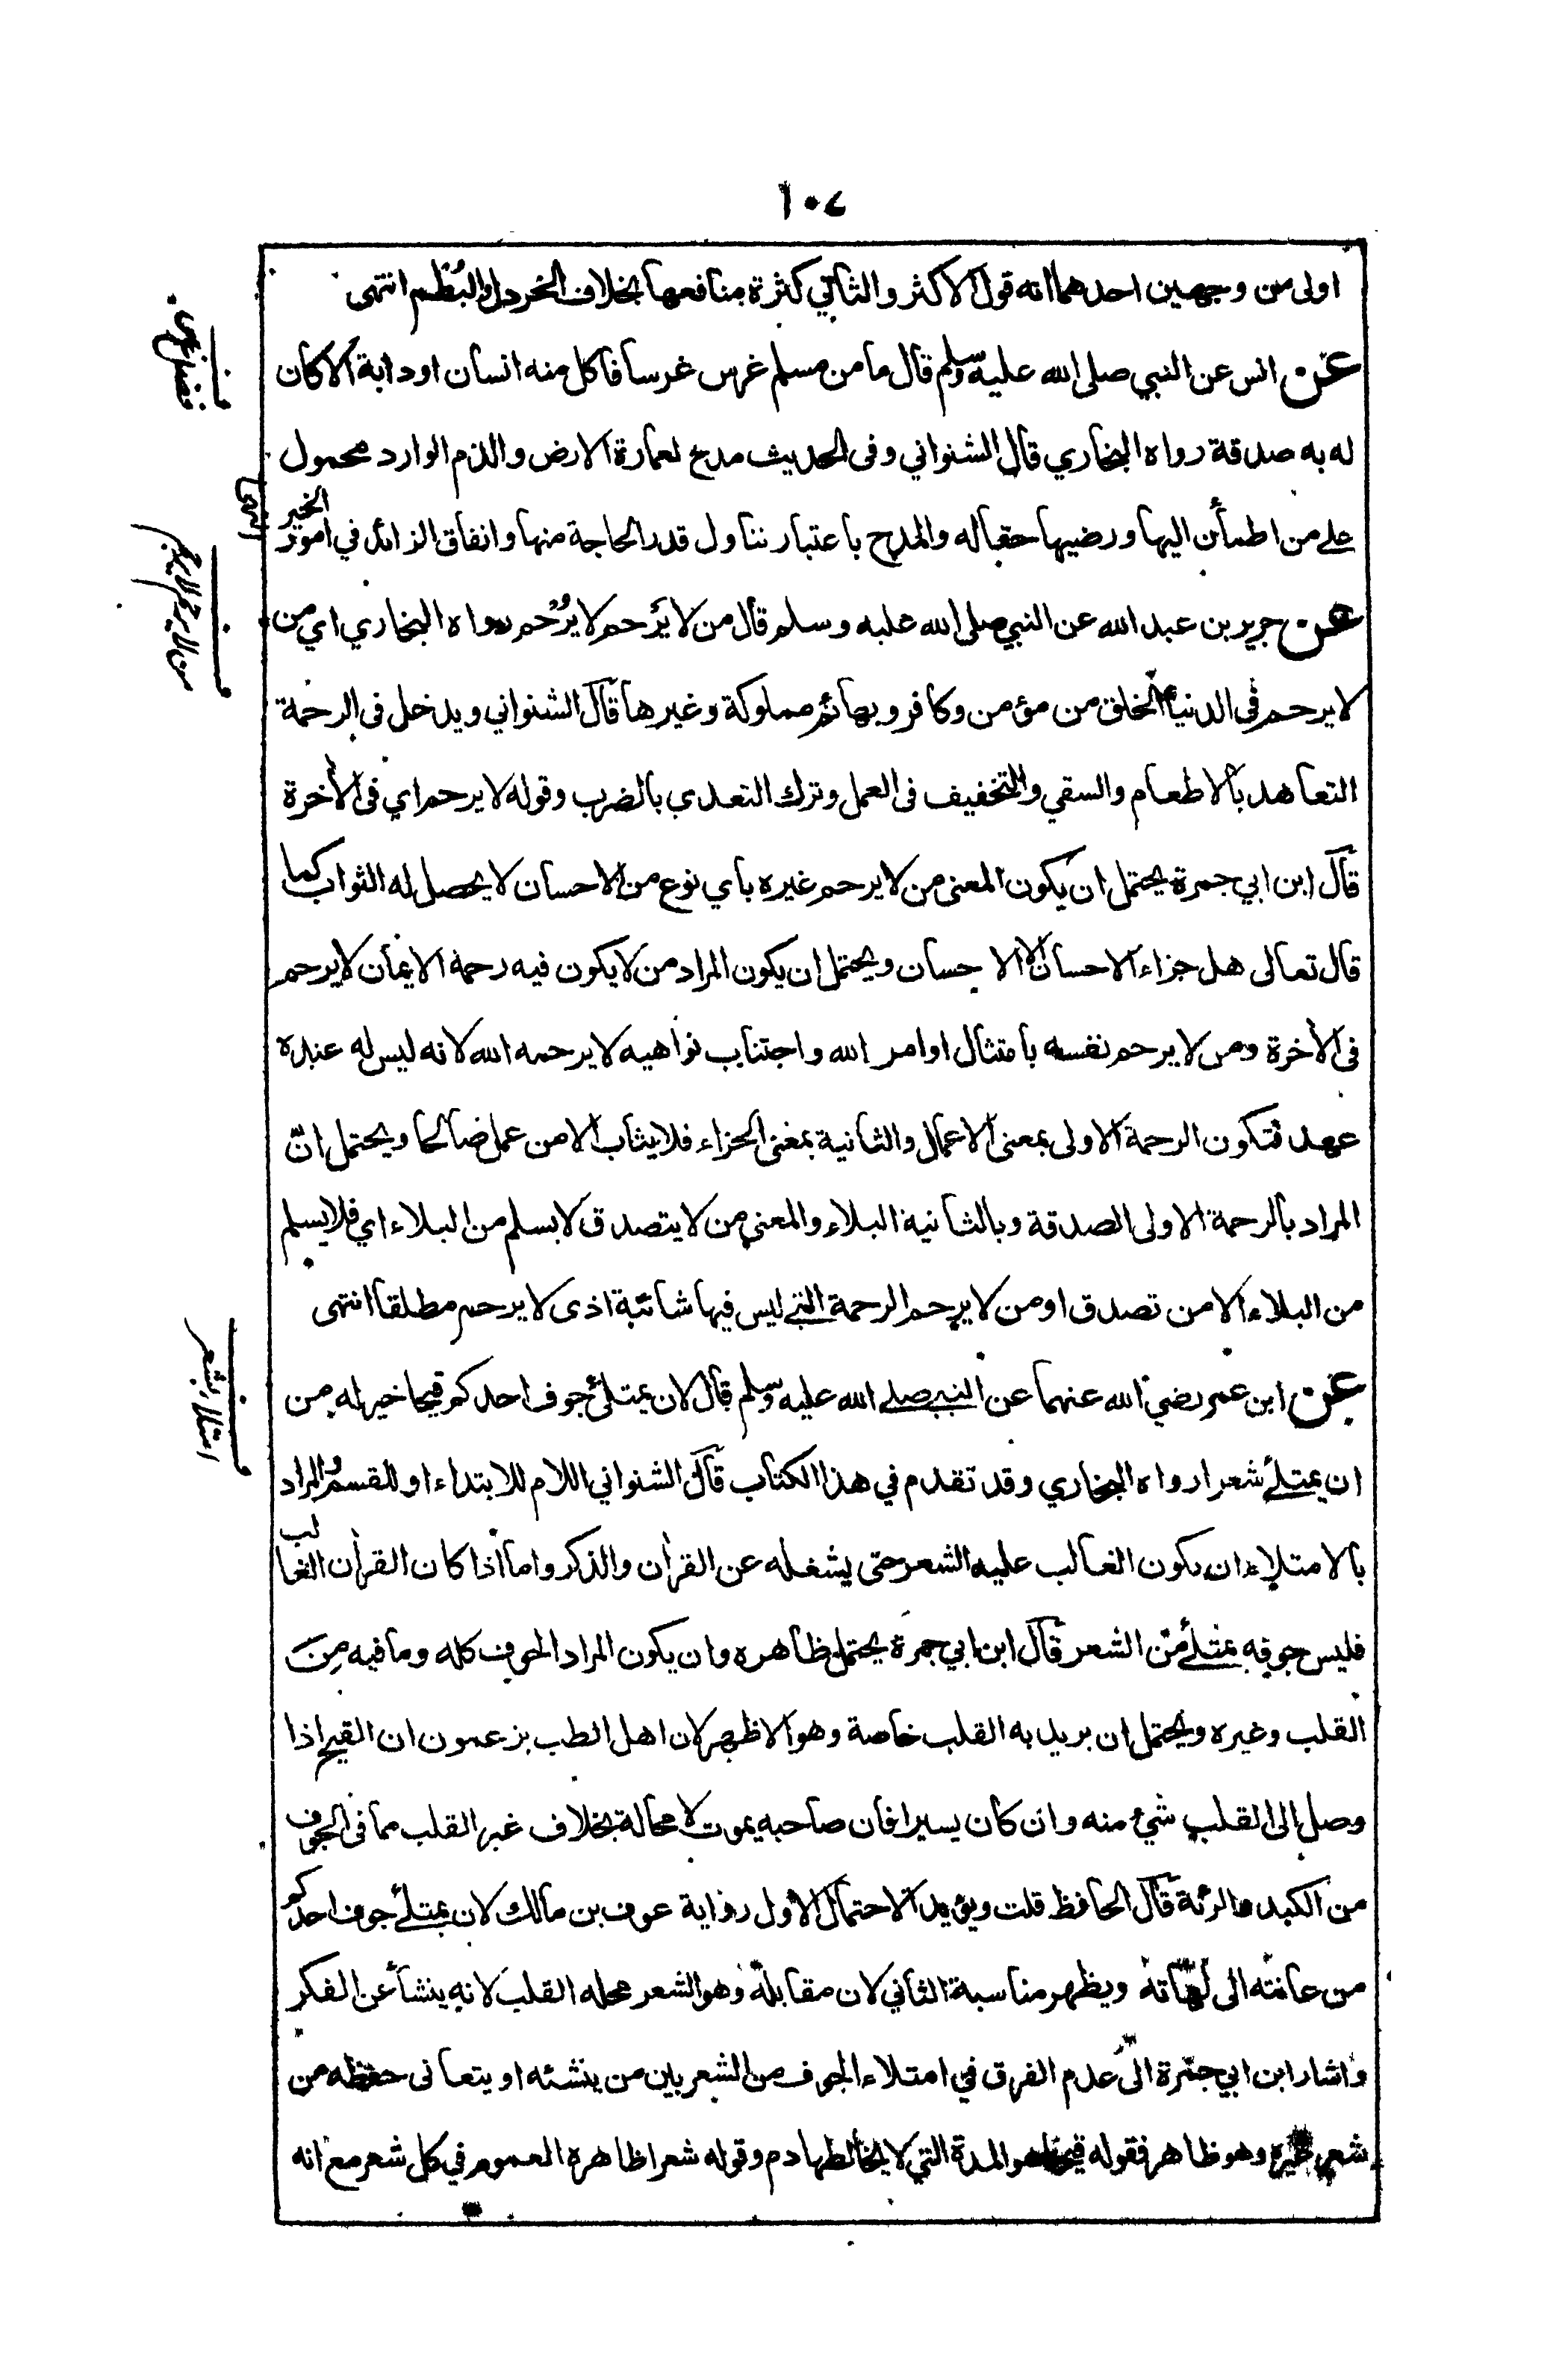 ١٠٤
اولى من وجهين احدهما انه قول الاكثر والثاني كثرة منافعها بخلاف الخردل والبُطْم انتهى
عن انس عن النبي صلى الله عليه وسلم قال ما من مسلم غرس غرسا فاكل منه انسان او دابة الا كان
له به صدقة رواه البخاري قال الشنواني وفى الحديث مدح لعمارة الارض والذم الوارد محمول
على من اطمأن اليها ورضيها حقبا له والمدح باعتبار تناول قدر الحاجة منها وانفاق الزائد في امور الخير انتهى
عن جرير بن عبد الله عن النبي صلى الله عليه وسلم قال من لا يَرحم لا يُرحم رواه البخاري اي من
لا يرحم في الدنيا الخلق من مؤمن وكافر وبهائم مملوكة وغيرها قال الشنواني ويدخل فى الرحمة
التعاهد بالاطعام والسقي والتخفيف فى العمل وترك التعدي بالضرب وقوله لا يرحم اي فى الآخرة
قال ابن ابي جمرة يحتمل ان يكون المعنى من لا يرحم غيره باي نوع من الاحسان لا يحصل له الثواب كما
قال تعالى هل جزاء الاحسان الا الاحسان ويحتمل ان يكون المراد من لا يكون فيه رحمة الايمان لا يرحم
فى الآخرة ومن لا يرحم نفسه بامتثال اوامر الله واجتناب نواهيه لا يرحمه الله لانه ليس له عنده
عهد فتكون الرحمة الاولى بمعنى الاعمال والثانية بمعنى الجزاء فلا يثاب الا من عمل صالحا ويحتمل انّ
المراد بالرحمة الاولى الصدقة وبالثانية البلاء والمعنى من لا يتصدق لا يسلم من البلاء اي فلا يسلم
من البلاء الا من تصدق او من لا يرحم الرحمة التي ليس فيها شائبة اذى لا يرحم مطلقا انتهى
عن ابن عمر رضي الله عنهما عن النبي صلى الله عليه وسلم قال لان يمتلئ جوف احدكم قيحا خير له من
ان يمتلئ شعرا رواه البخاري وقد تقدم في هذا الكتاب قال الشنواني اللام للابتداء او للقسم والمراد
بالامتلاء ان يكون الغالب عليه الشعر حتى يشغله عن القرآن والذكر واما اذا كان القرآن الغالب
فليس جوفه ممتلئ من الشعر قال ابن ابي جمرة يحتمل ظاهره وان يكون المراد الجوف كله وما فيه مِنَ
القلب وغيره ويحتمل ان يريد به القلب خاصة وهو الاظهر لان اهل الطب يزعمون ان القيح اذا
وصل الى القلب شئ منه وان كان يسيرا فان صاحبه يموت لا محالة بخلاف غير القلب مما فى الجوف
من الكبد والرئة قال الحافظ قلت ويؤيد الاحتمال الاول رواية عوف بن مالك لان يمتلئ جوف احدكم
من عانته الى لهاته ويظهر مناسبة الثاني لان مقابله وهو الشعر محله القلب لانه ينشأ عن الفكر
واشار ابن ابي جمرة الى عدم الفرق في امتلاء الجوف من الشعر بين من ينشئه او يتعانى حفظه من
شعر غيره وهو ظاهر فقوله قيحا هو المدة التي لا يخالطها دم وقوله شعرا ظاهره العموم في كل شعر مع انه
من لا يرحم لا يرحم